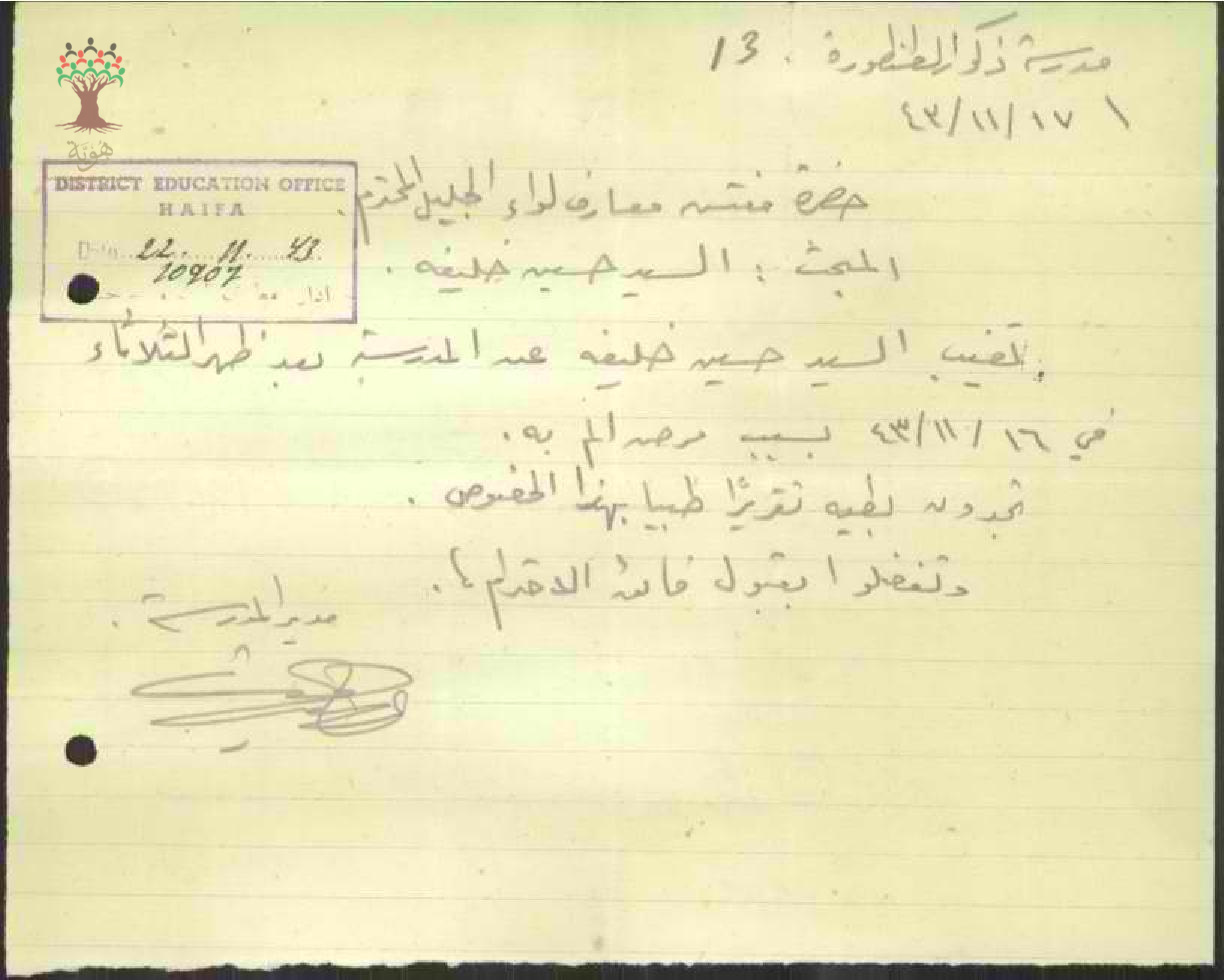 مدرسة ذكور الطنطورة . 13
١٧/١١/٤٣
حضرة مفتش معارف لواء الجليل المحترم .
المبحث : السيد حسين خليفه .
تغيب السيد حسين خليفه عن المدرسة بعد ظهر الثلاثاء
في ١٦/١١/٤٣ بسبب مرض الم به .
تجدون بطيه تقريرًا طبيا بهذا الخصوص .
وتفضلوا بقبول فائق الاحترام ،،
مدير المدرسة .
هوية
DISTRICT EDUCATION OFFICE
HAIFA
Date 22. 11. 43.
10907